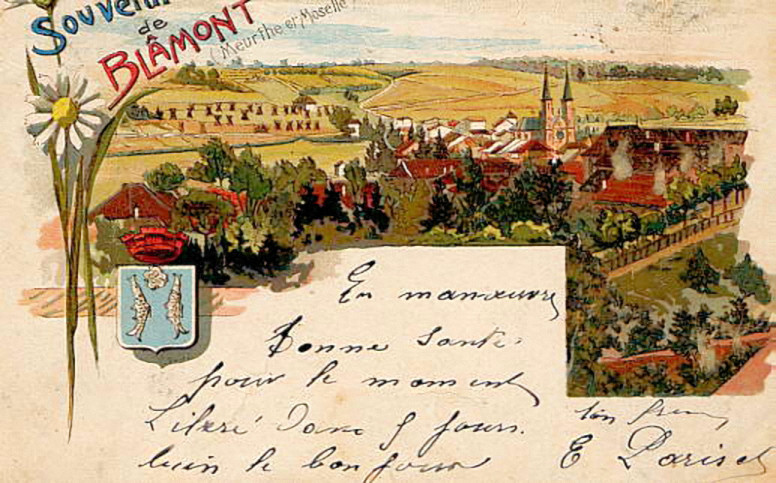 Souvenir
de
BLÂMONT
(Meurthe et Moselle)
En manœuvre
Bonne Santé
pour le moment
Libéré Dans 5 jours.
bien le bonjour
ton frère
E Parisot